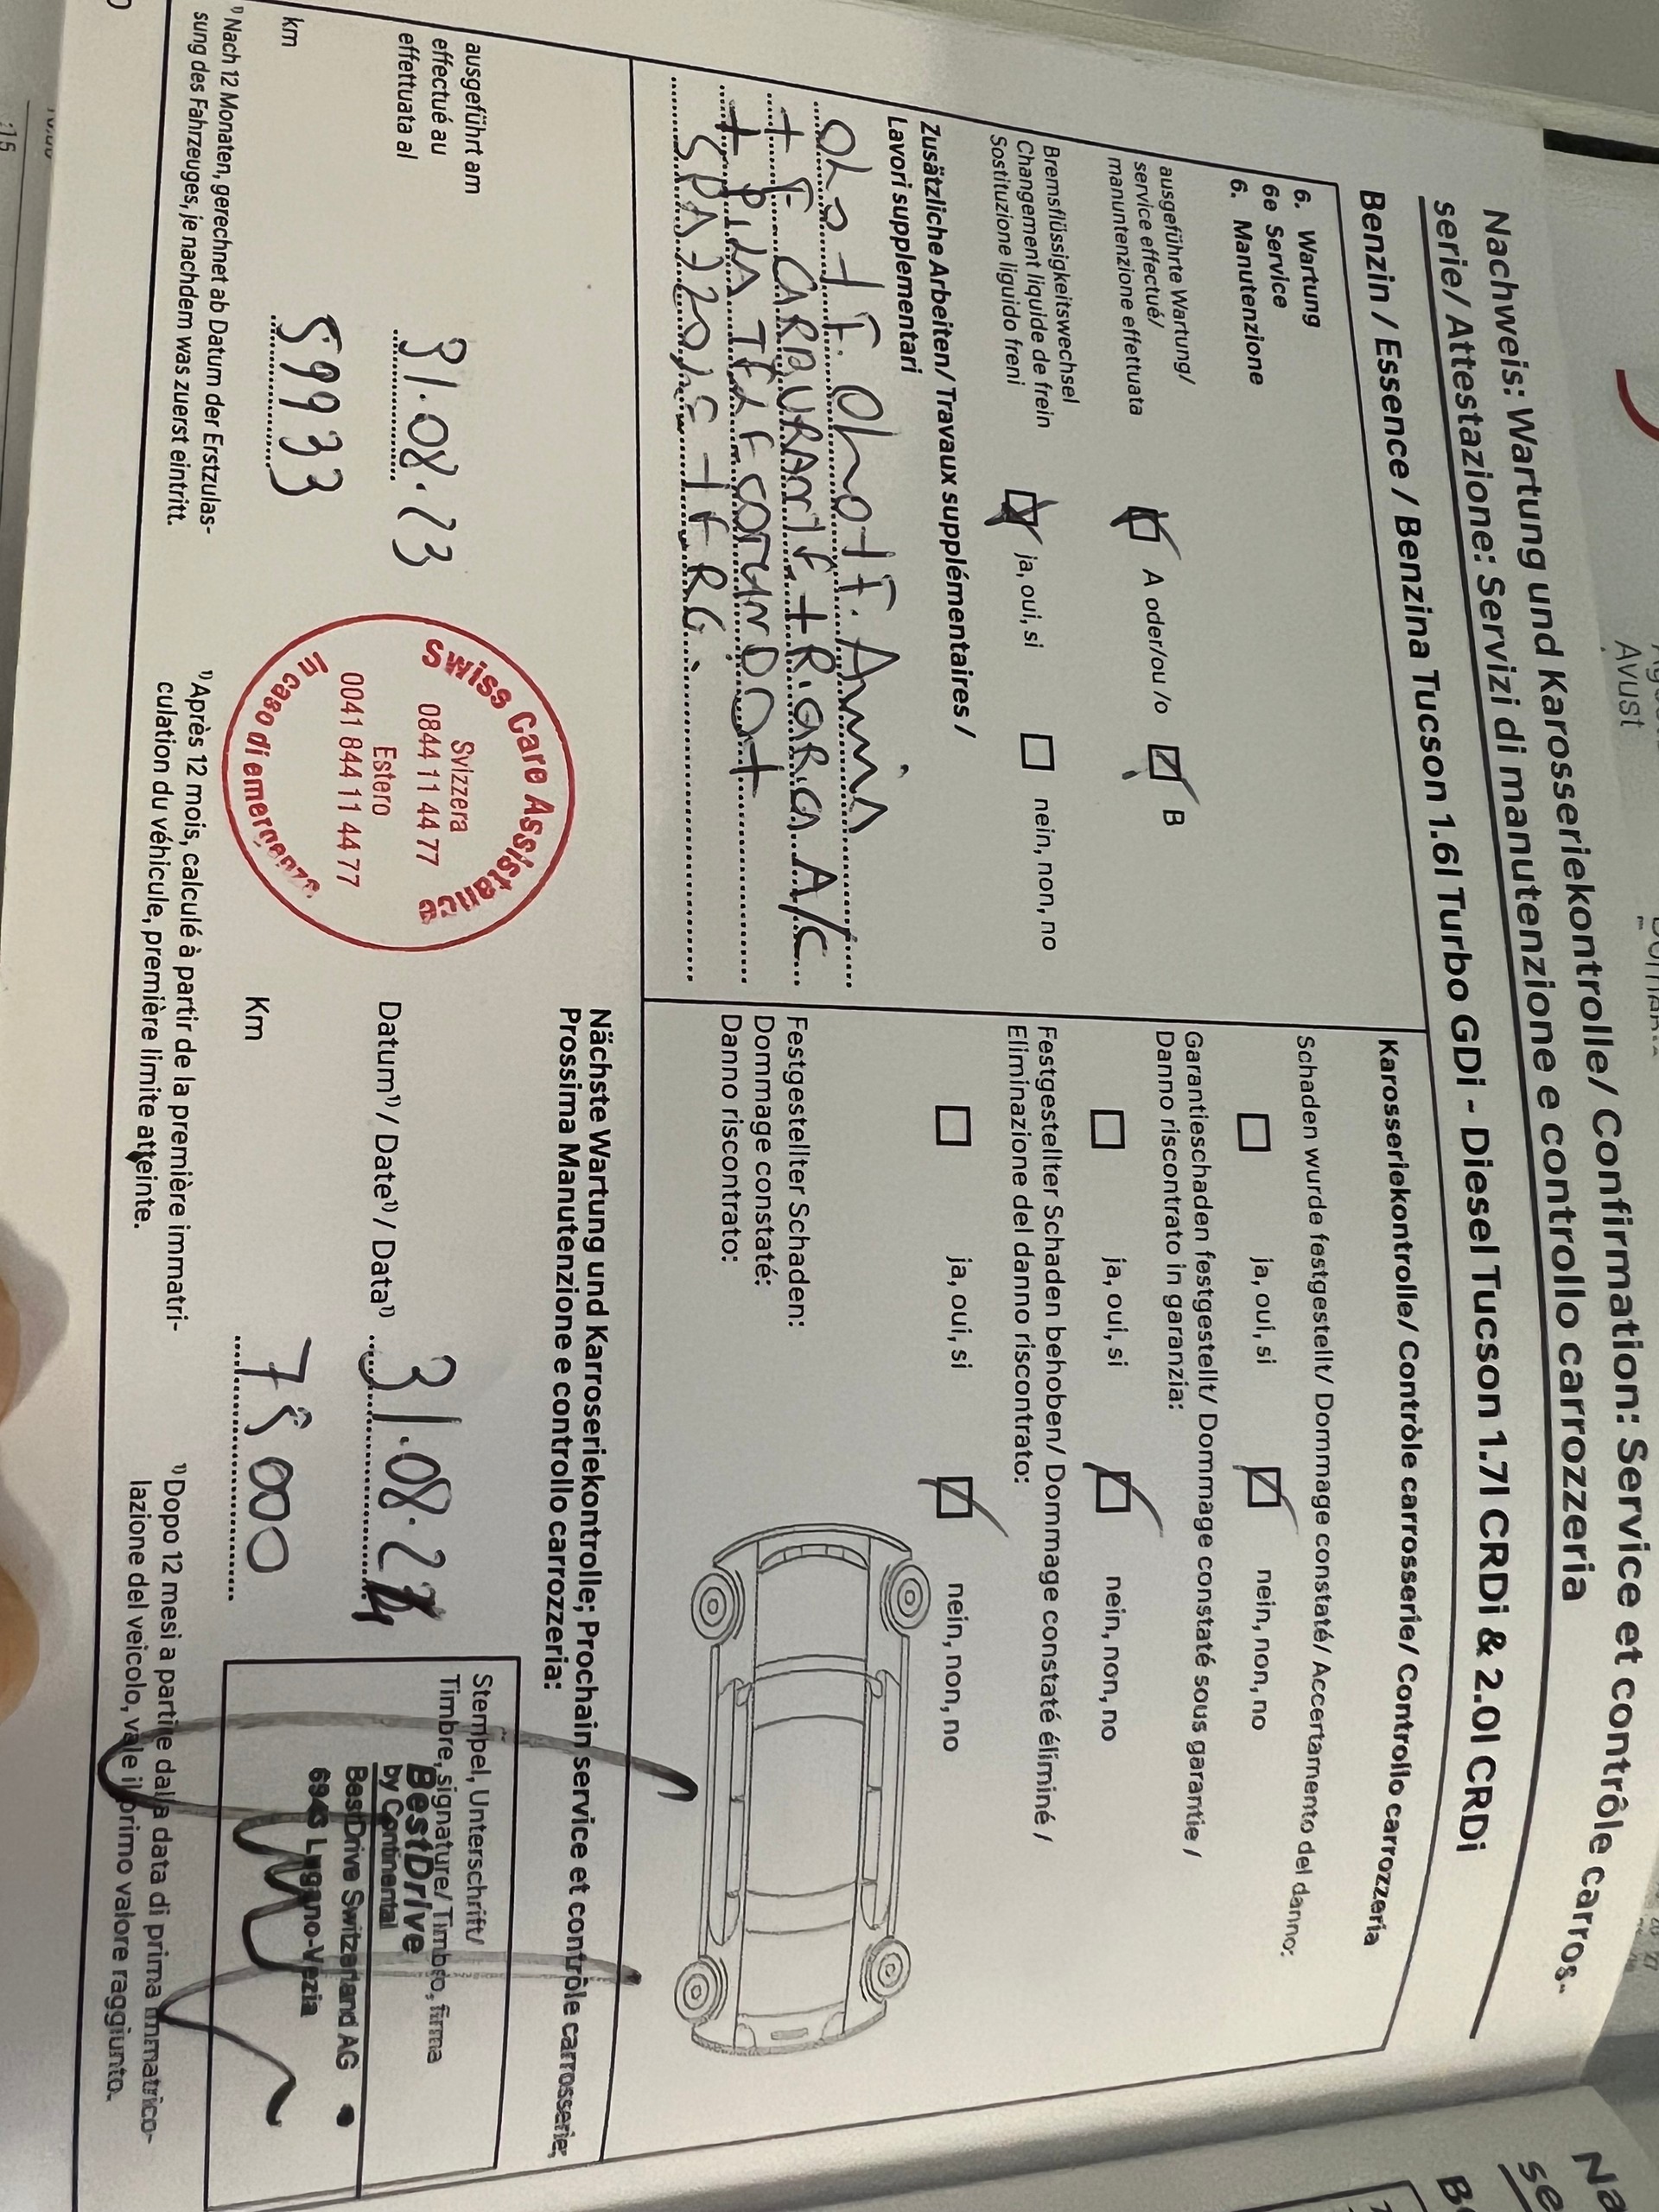 Nachweis: Wartung und Karosseriekontrolle/ Confirmation: Service et contrôle carros-
serie/ Attestazione: Servizi di manutenzione e controllo carrozzeria
Benzin / Essence / Benzina Tucson 1.6l Turbo GDi - Diesel Tucson 1.7l CRDi & 2.0l CRDi
6. Wartung
6e Service
6. Manutenzione
ausgeführte Wartung/
service effectué/
manuntenzione effettuata
A oder/ou /o
B
Bremsflüssigkeitswechsel
Changement liquide de frein
Sostituzione liguido freni
ja, oui, si
nein, non, no
Zusätzliche Arbeiten/ Travaux supplémentaires /
Lavori supplementari
OLIO + F. OLIO + F. ARIA
+ F. CARBURANTE + RICARICA A/C
+ PULIZIA
+
Karosseriekontrolle/ Contrôle carrosserie/ Controllo carrozzeria
Schaden wurde festgestellt/ Dommage constaté/ Accertamento del danno:
ja, oui, si
nein, non, no
Garantieschaden festgestellt/ Dommage constaté sous garantie /
Danno riscontrato in garanzia:
ja, oui, si
nein, non, no
Festgestellter Schaden behoben/ Dommage constaté éliminé /
Eliminazione del danno riscontrato:
ja, oui, si
nein, non, no
Festgestellter Schaden:
Dommage constaté:
Danno riscontrato:
ausgeführt am
effectué au
effettuata al
31.08.23
km
59933
Swiss Care Assistance
Svizzera
0844 11 44 77
Estero
0041 844 11 44 77
in caso di emergenza
Nächste Wartung und Karroseriekontrolle; Prochain service et contrôle carrosserie;
Prossima Manutenzione e controllo carrozzeria:
Datum¹⁾ / Date¹⁾ / Data¹⁾
31.08.24
Km
75000
Stempel, Unterschrift/
Timbre, signature/ Timbro, firma
BestDrive
by Continental
BestDrive Switzerland AG
6943 Lugano-Vezia
¹⁾ Nach 12 Monaten, gerechnet ab Datum der Erstzulas-
sung des Fahrzeuges, je nachdem was zuerst eintritt.
¹⁾ Après 12 mois, calculé à partir de la première immatri-
culation du véhicule, première limite atteinte.
¹⁾ Dopo 12 mesi a partire dalla data di prima immatrico-
lazione del veicolo, vale il primo valore raggiunto.
Avust
:15
Na
se